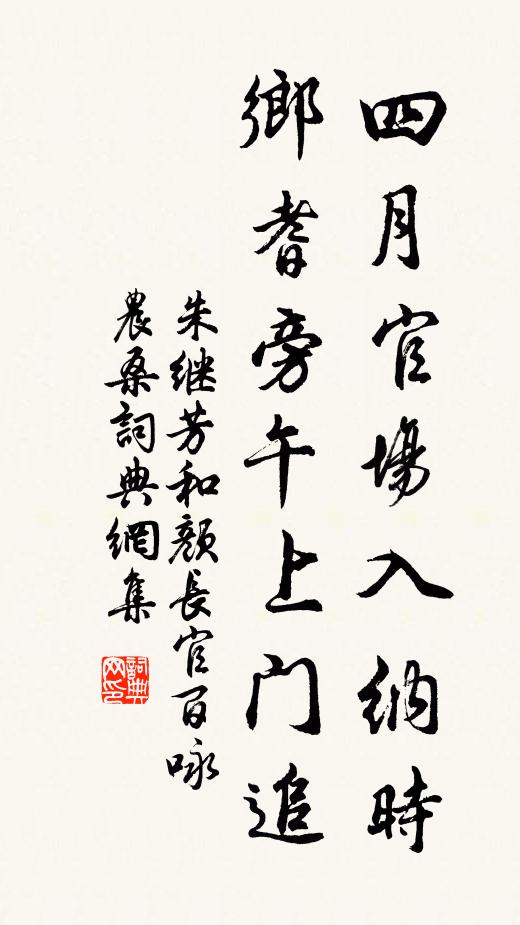 四月官場入納時
鄉耆旁午上门追
朱继芳和顔長官百咏
農桑詞典網集
詞典网印